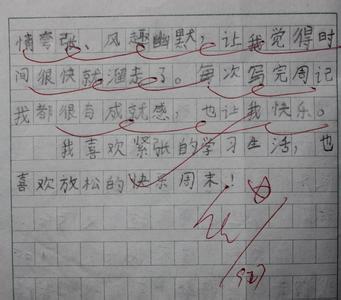 情夸张、风趣幽默，让我觉得时
间很快就溜走了。每次写完周记
我都很有成就感，也让我快乐。
我喜欢紧张的学习生活，也
喜欢放松的快乐周末！